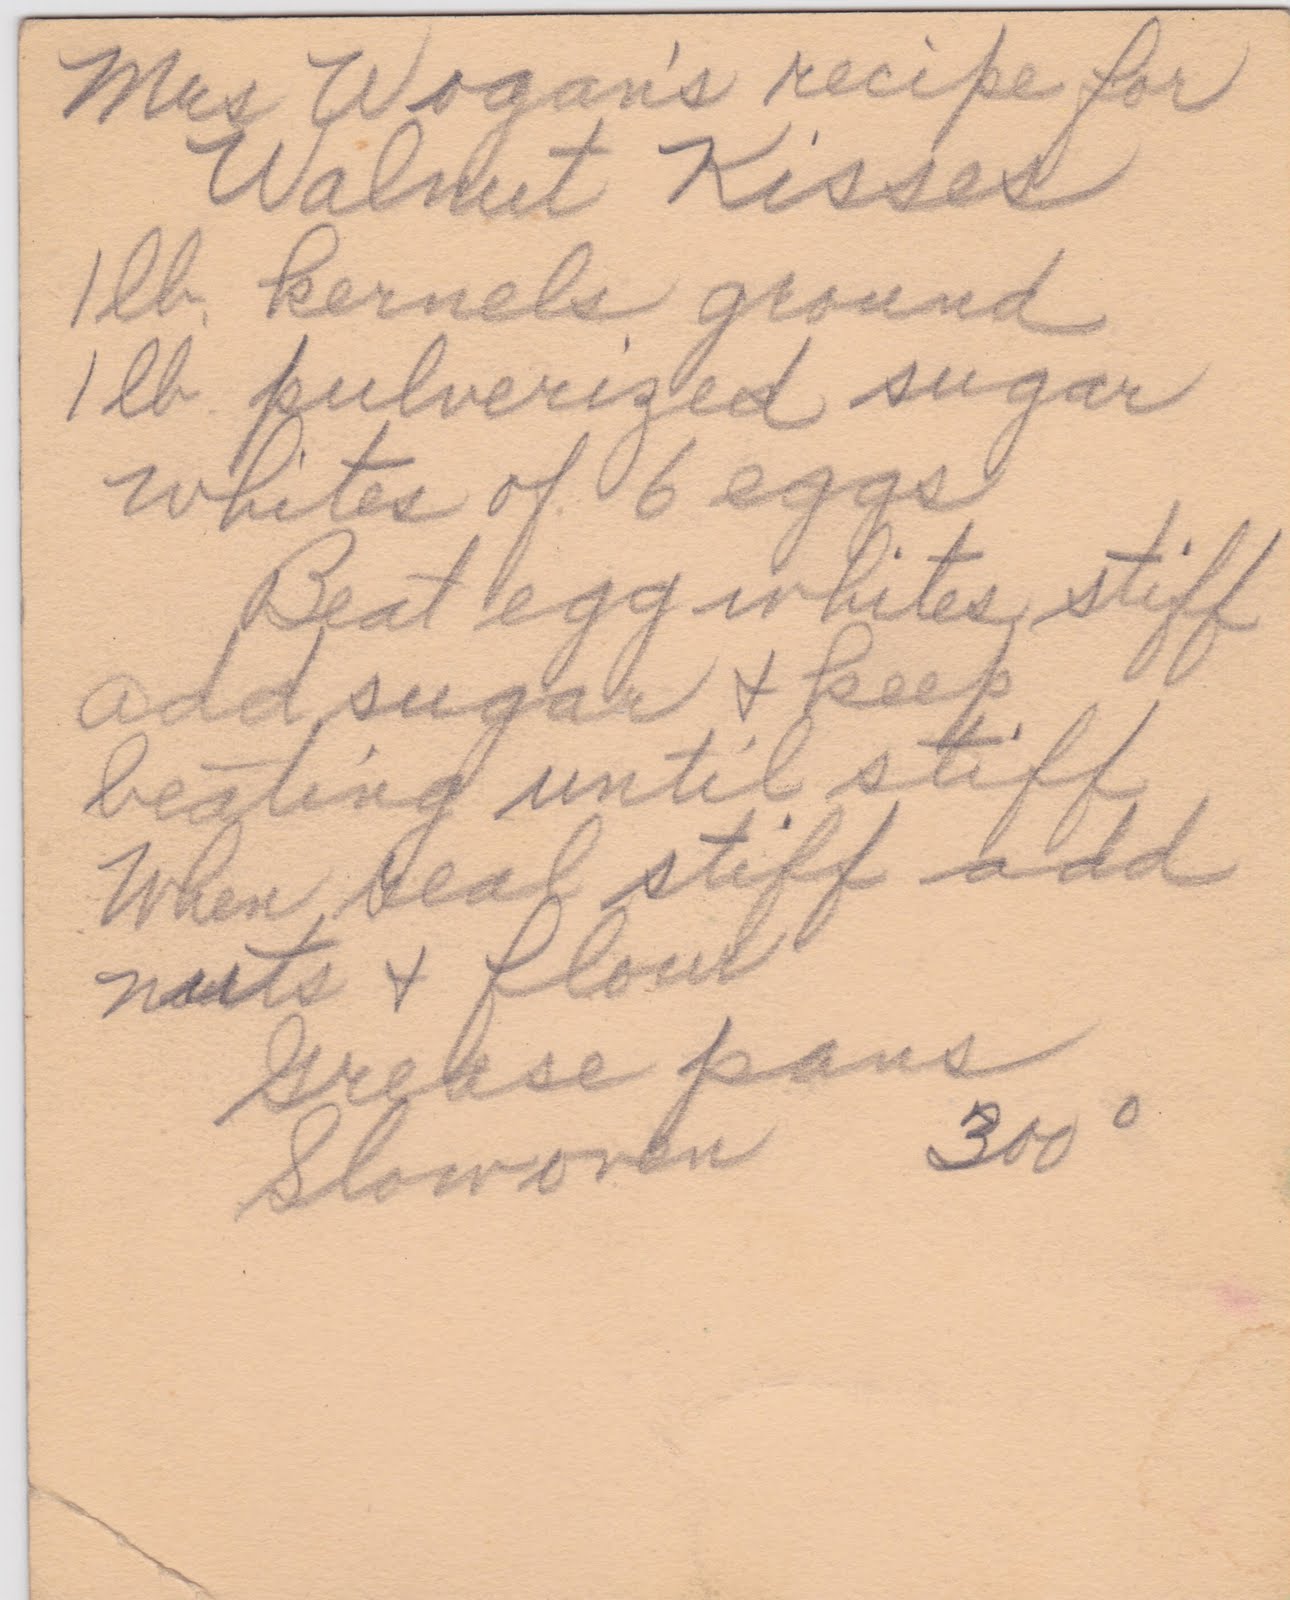 Mrs Wogan's recipe for
Walnut Kisses
1 lb. kernels ground
1 lb. pulverized sugar
whites of 6 eggs
Beat egg whites stiff
add sugar & keep
beating until stiff
When real stiff add
nuts & flour
Grease pans
Slow oven 300°